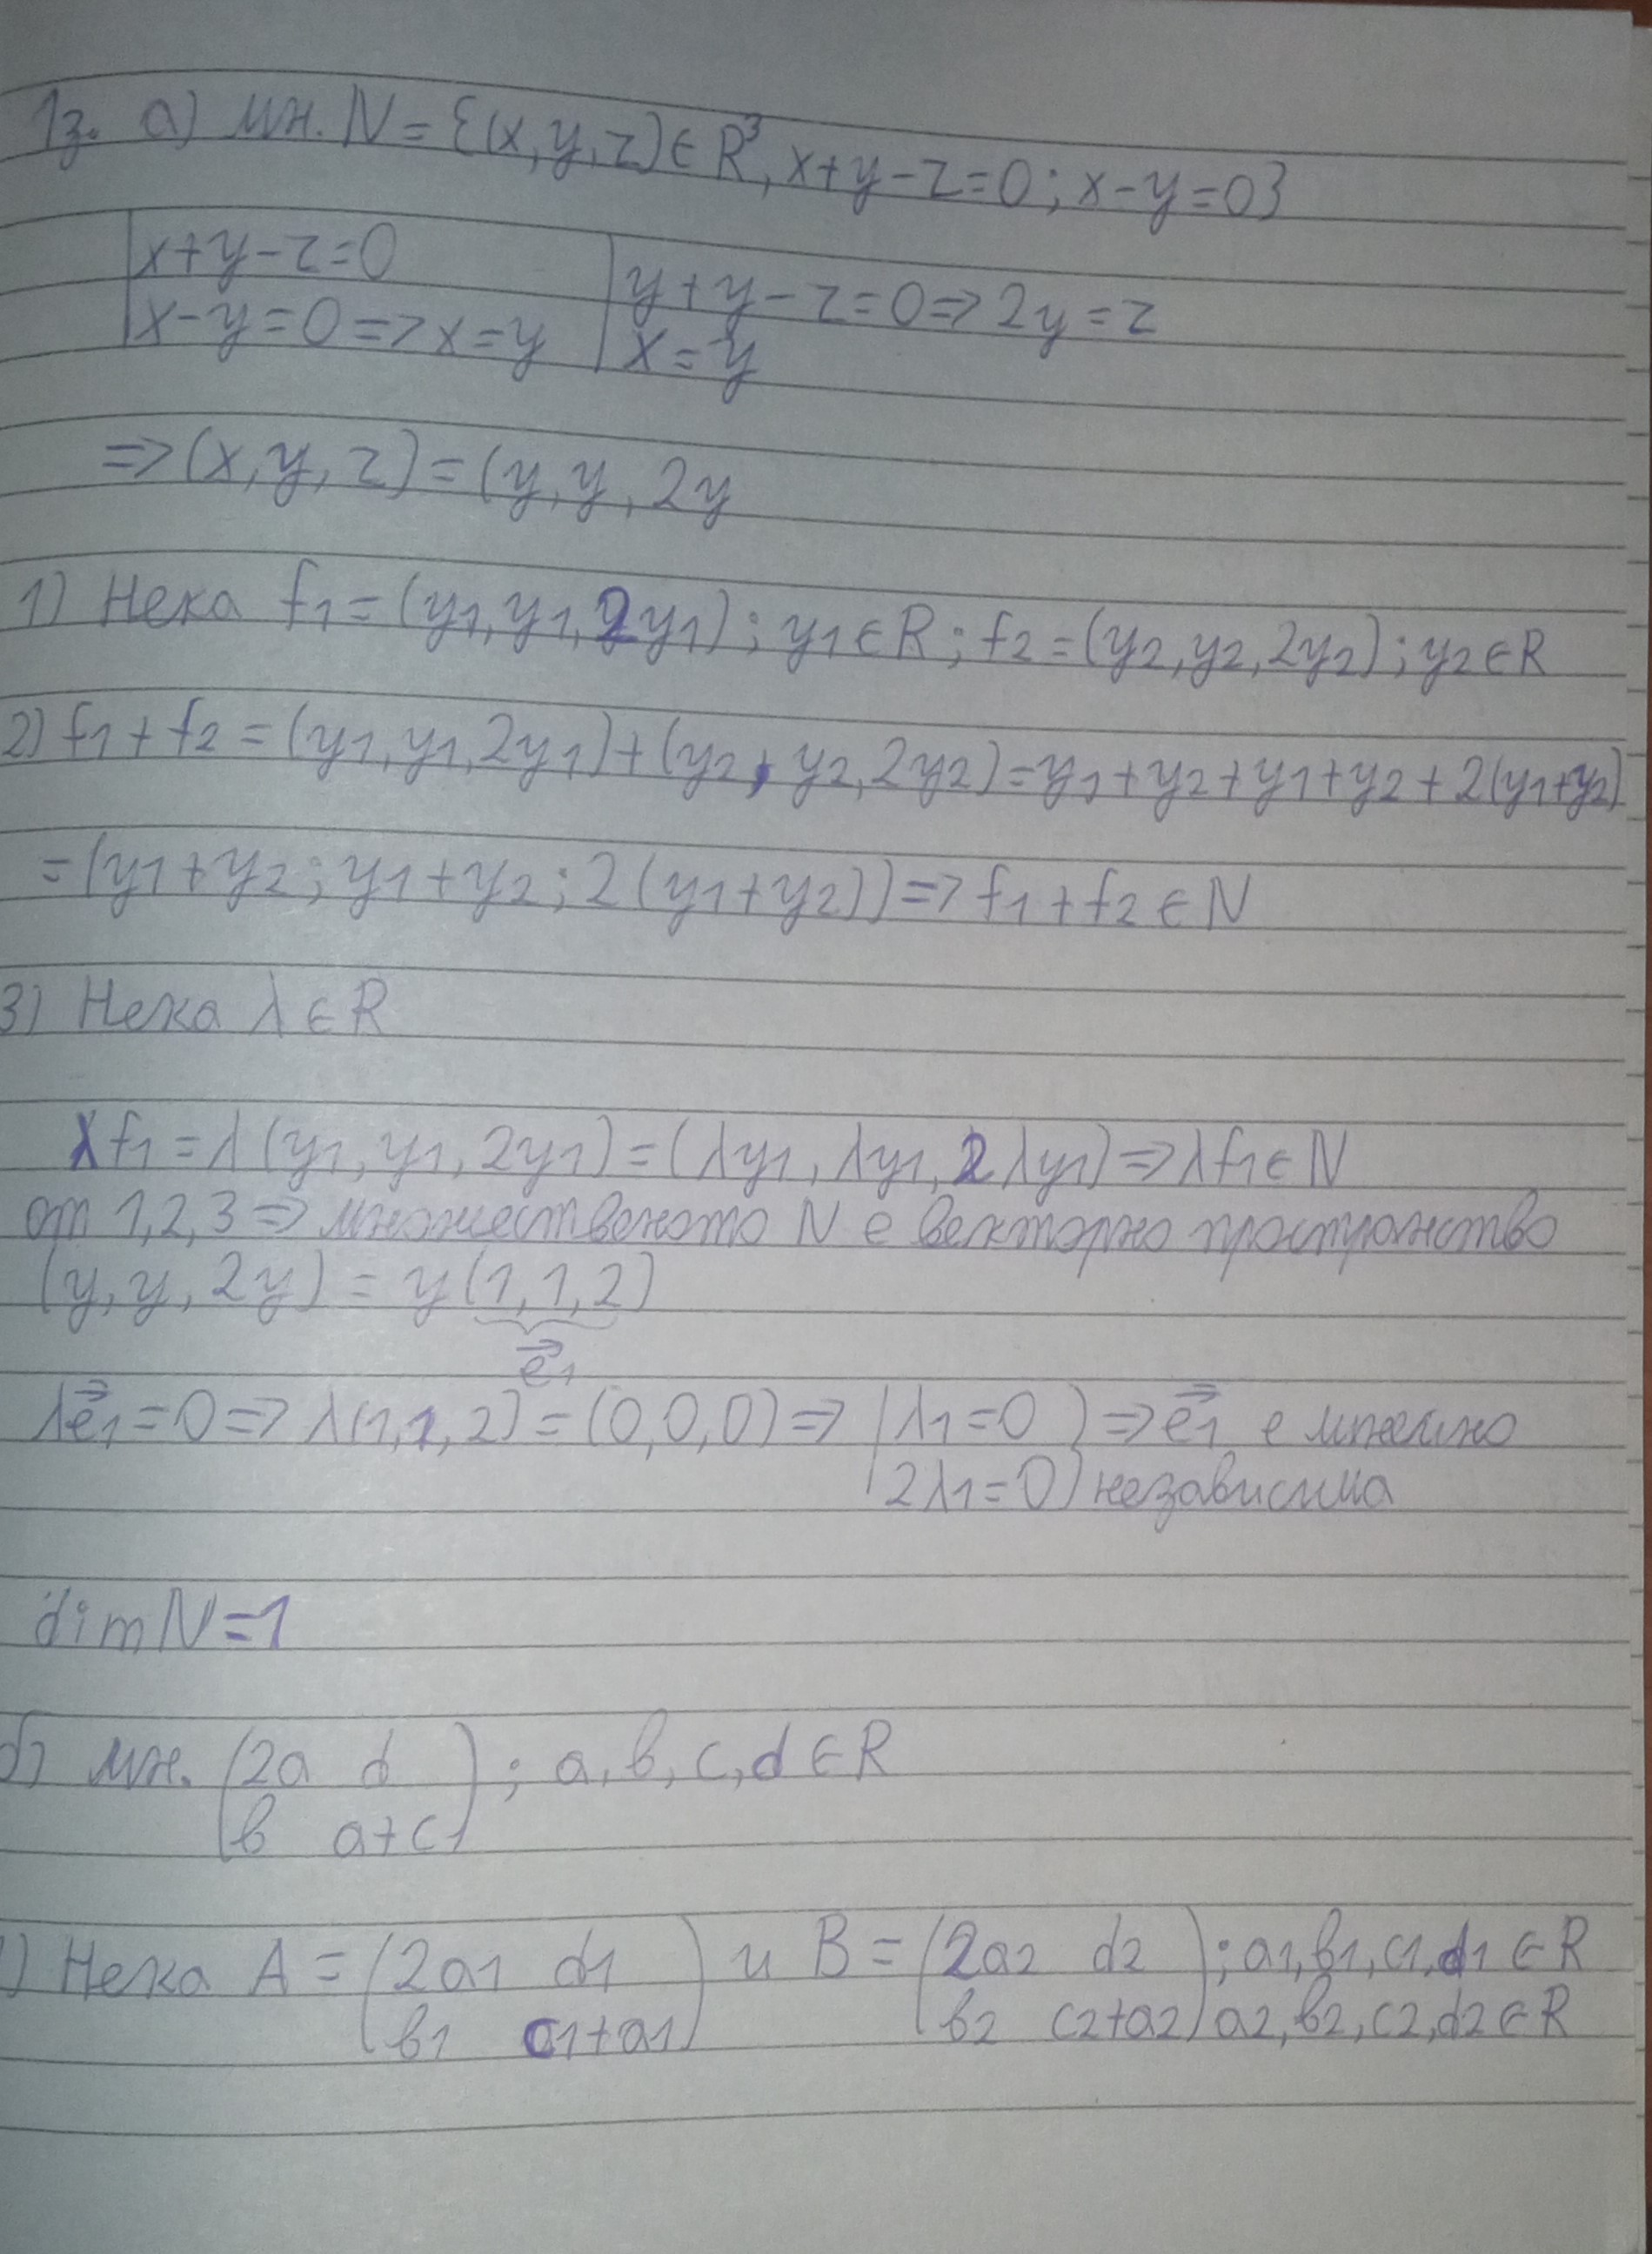 1з. а) мн. N = {(x, y, z) ∈ R³, x+y-z=0; x-y=0}
|x+y-z=0 |y+y-z=0 => 2y=z
|x-y=0 => x=y |x=y
=> (x, y, z) = (y, y, 2y
1) Нека f1 = (y1, y1, 2y1); y1 ∈ R; f2 = (y2, y2, 2y2); y2 ∈ R
2) f1 + f2 = (y1, y1, 2y1) + (y2, y2, 2y2) = y1+y2+y1+y2+2(y1+y2)
= (y1+y2; y1+y2; 2(y1+y2)) => f1+f2 ∈ N
3) Нека λ ∈ R
λf1 = λ(y1, y1, 2y1) = (λy1, λy1, 2λy1) => λf1 ∈ N
от 1,2,3 => множественото N е векторно пространство
(y, y, 2y) = y(1,1,2)
e⃗1
λe⃗1 = 0 => λ(1,1,2) = (0,0,0) => |λ1=0 ) => e⃗1 е линейно
|2λ1=0) независима
dim N = 1
б) мн. (2a d ); a, в, c, d ∈ R
(в a+c)
1) Нека A = (2a1 d1 ) и B = (2a2 d2 ); a1, в1, c1, d1 ∈ R
(в1 c1+a1) (в2 c2+a2) a2, в2, c2, d2 ∈ R